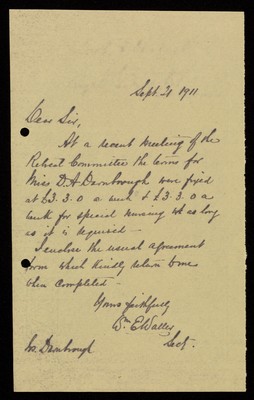 Sept. 21 1911
Dear Sir,
At a recent meeting of the
Retreat Committee the terms for
Miss D. A. Darnbrough were fixed
at £3. 3. 0 a week & £3. 3. 0 a
week for special nursing as long
as it is required —
I enclose the usual agreement
from which kindly return to me
when completed —
Yours faithfully
Wm E Waller
Secy.
Darnbrough